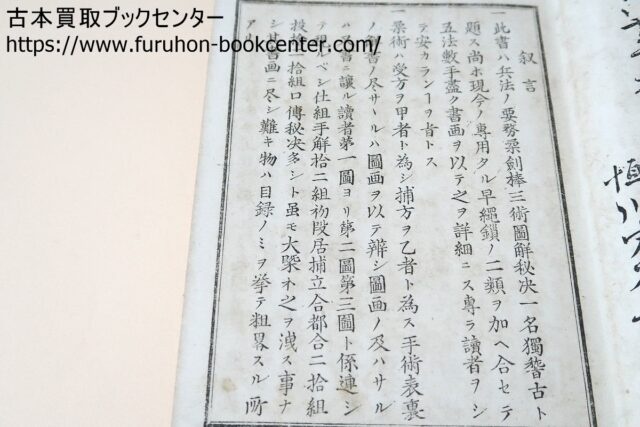 古本買取ブックセンター
https://www.furuhon-bookcenter.com/
叙言
一此書ハ兵法ノ要務柔劍棒三術圖解秘决一名獨稽古ト
題ス尚ホ現今ノ専用タル早繩鎖ノ二類ヲ加ヘ合セテ
五法數手盡ク書画ヲ以テ之ヲ詳細ニス専ラ讀者ヲシ
テ安カランヿヲ旨トス
一柔術ハ受方ヲ甲者ト為シ捕方ヲ乙者ト為ス手術表裏
ノ解書ノ尽サヾルハ圖画ヲ以テ辨シ圖画ノ及ハサル
ハ書ニ讓ル讀者第一圖ヨリ第二圖第三圖ト係連シ
テ視ルベシ仕組手解拾二組初段居捕立合都合二拾組
投捨二拾組口傳秘决多シト虽モ大槩オ之ヲ洩ス事ナ
シ其書画ニ尽シ難キ物ハ目録ノミヲ挙テ粗畧スル所
アリ